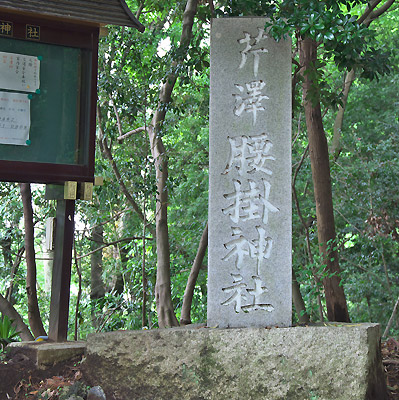 神社
芹澤腰掛神社